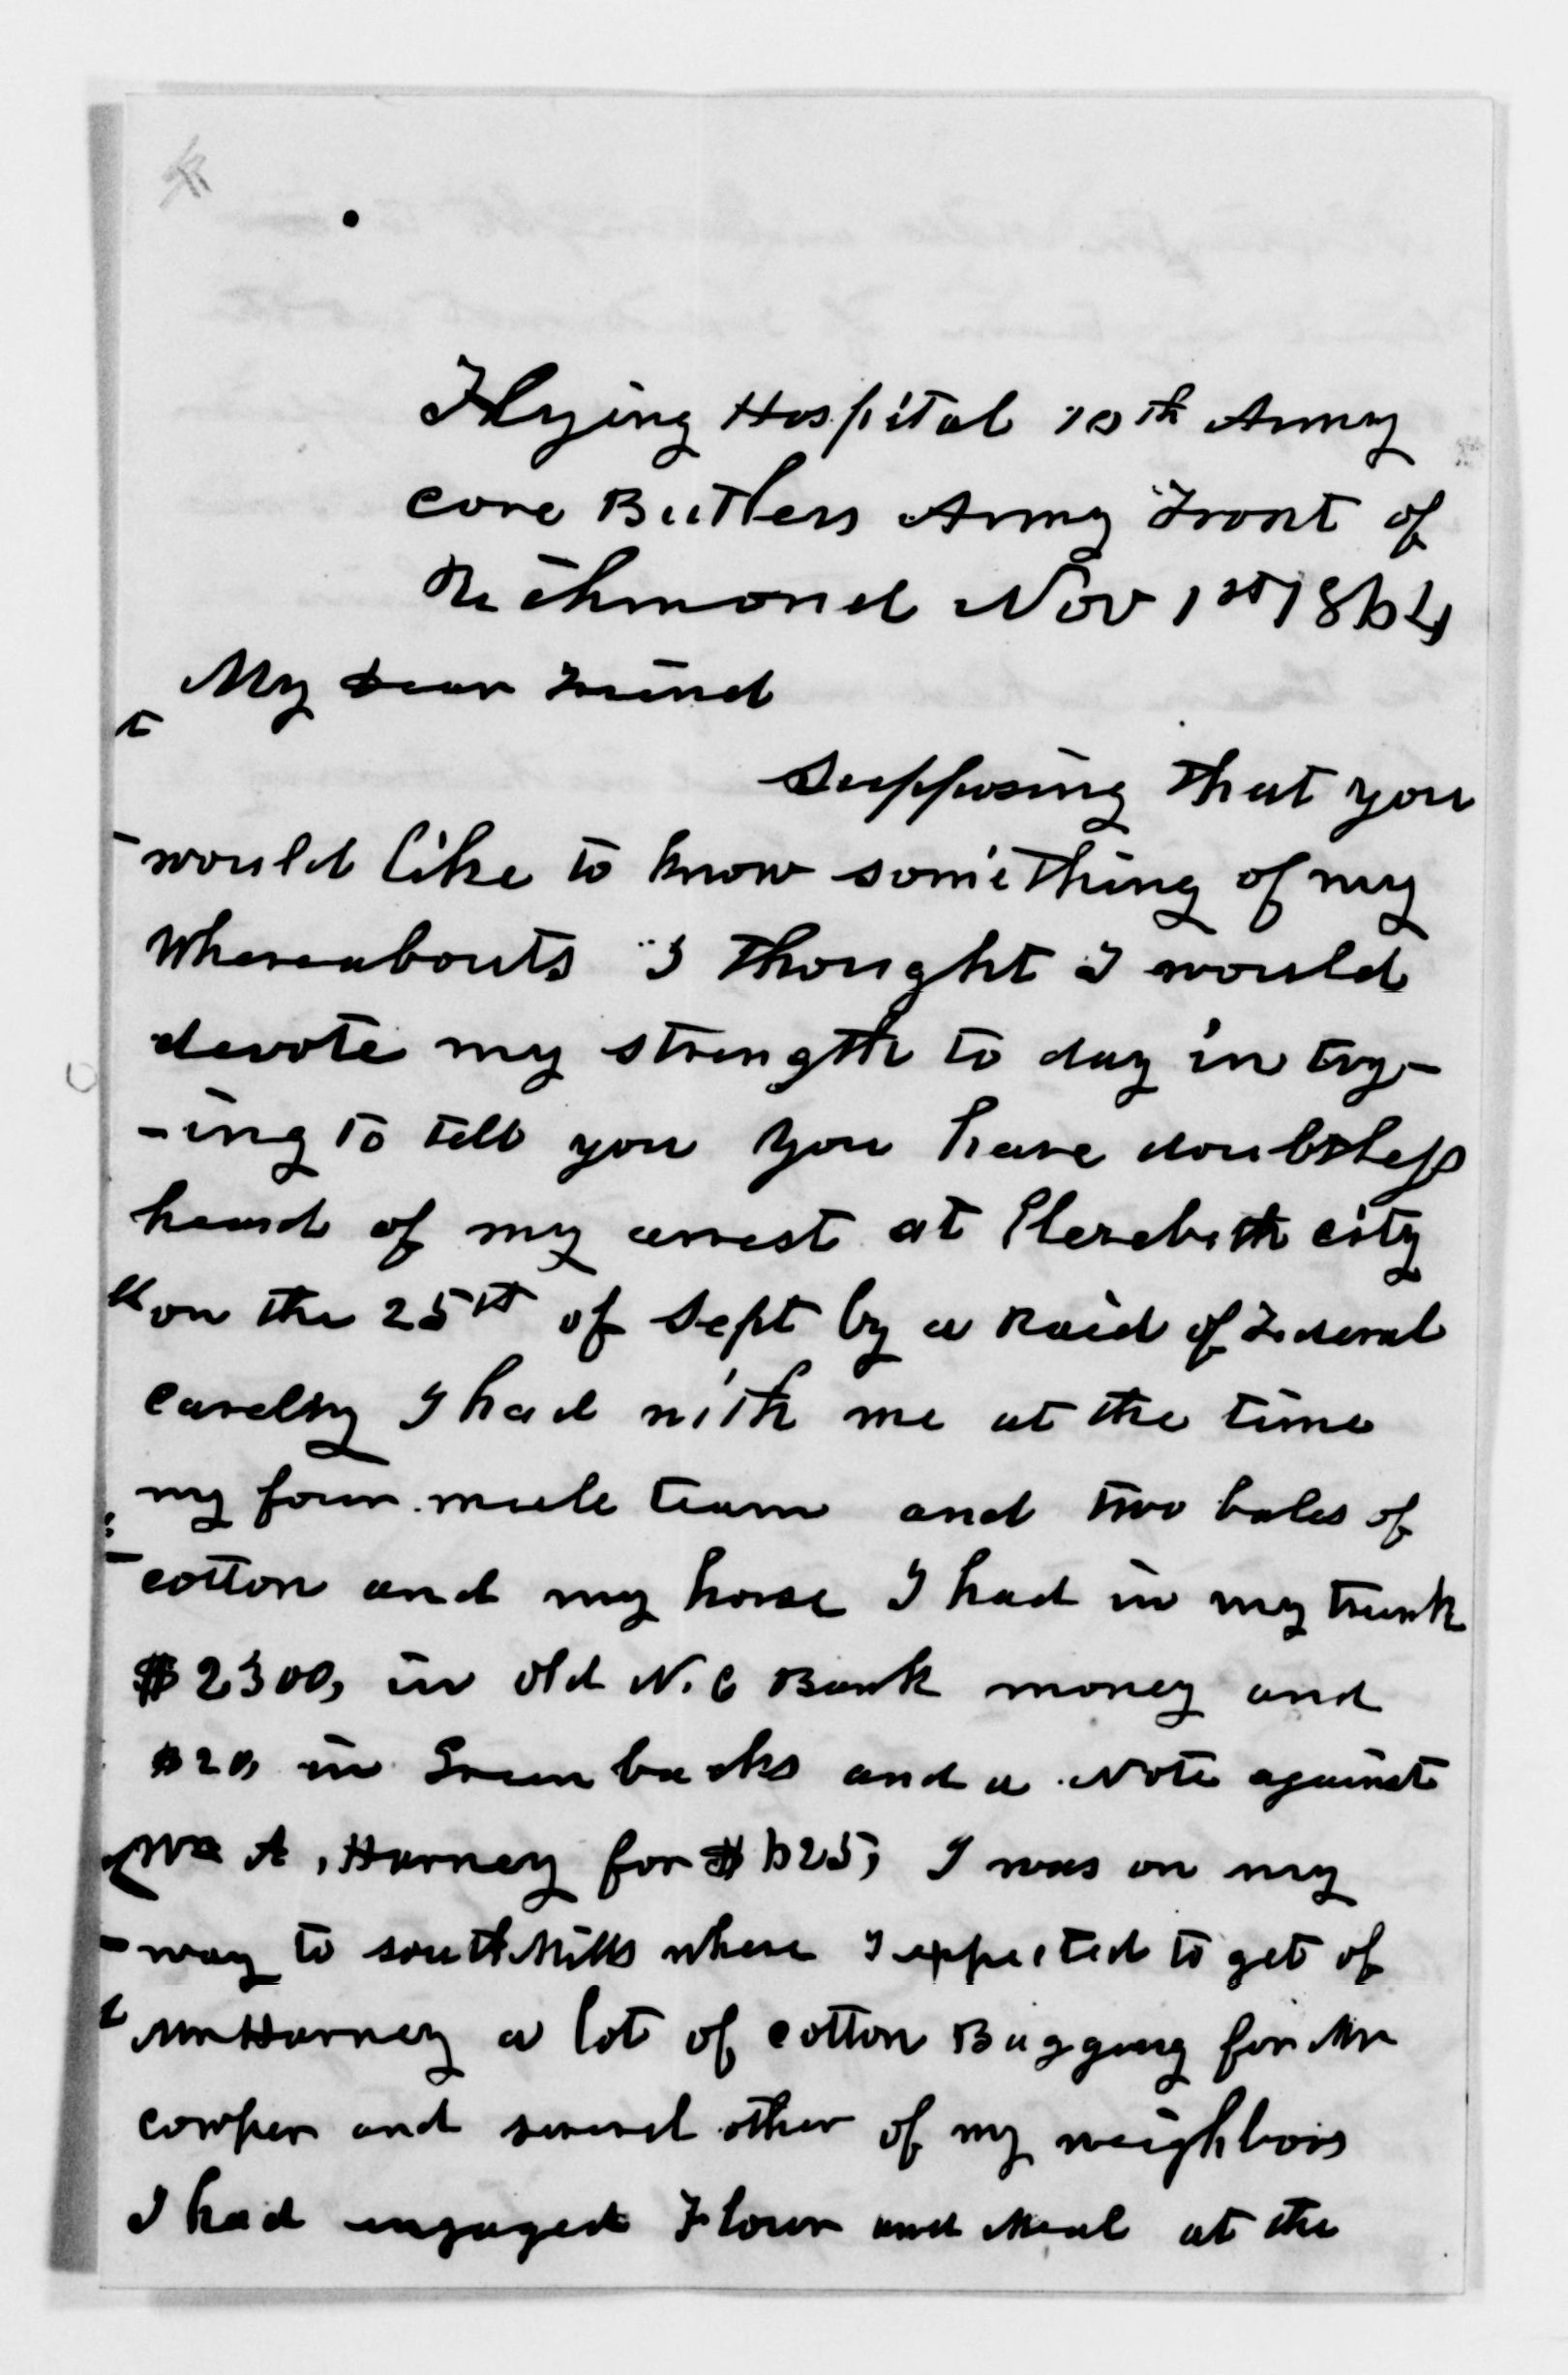 Flying Hospital 10th Army
core Butlers Army Front of
Richmond Nov 1st 1864
My Dear Friend
Supposing that you
would like to know something of my
Whereabouts I thought I would
devote my strength to day in try-
-ing to tell you You have doubtless
heard of my arrest at Elezebeth city
on the 25th of Sept by a Raid of Federal
cavelry I had with me at the time
my four mule team and two bales of
cotton and my horse I had in my trunk
$2300, in old N.C Bank money and
$20, in Green backs and a Note against
Wm A, Harney for $625, I was on my
way to south Mills where I expected to get of
Mr Harney a lot of cotton Bagging for Mr
cowper and several other of my neighbors
I had engaged Flour and Meal at the